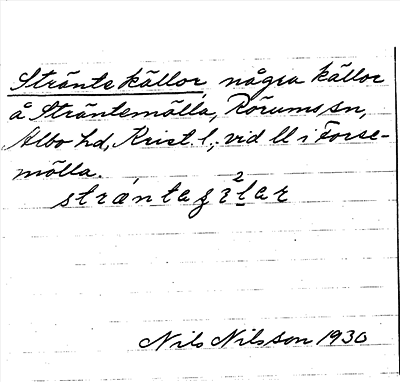 Sträntekällor, några källor
å Sträntemölla, Rörums sn,
Albo hd, Krist. l., vid ll i Forse-
mölla.
Nils Nilsson 1930